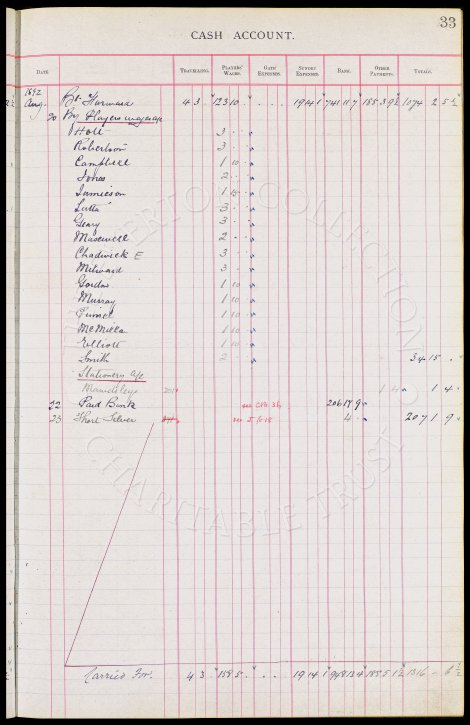 33
CASH ACCOUNT.
DATE TRAVELLING. PLAYERS' WAGES. GATE EXPENSES. SUNDRY EXPENSES. BANK. OTHER PAYMENTS. TOTALS.
Aug. Bt Forward 4 3 123 10 19 14 1 741 11 7 185 3 9½ 1074 2 5½
20 By Players wages
Holt 3
Robertson 3
Campbell 1 10
Jones 2
Jamieson 1 15
Latta 3
Geary 3
Maxwell 2
Chadwick E 3
Milward 3
Gordon 1 10
Murray 1 10
1 10
McMillan 1 10
Elliott 1 10
Smith 2 34 15
Stationery a/c
1 4 1 4
22 Paid Bank 206 17 9
23 Short Silver 4 207 1 9
Carried For. 4 3 158 5 19 14 1 948 13 4 185 5 1½ 1316 - 6½
THE EVERTON COLLECTION
CHARITABLE TRUST